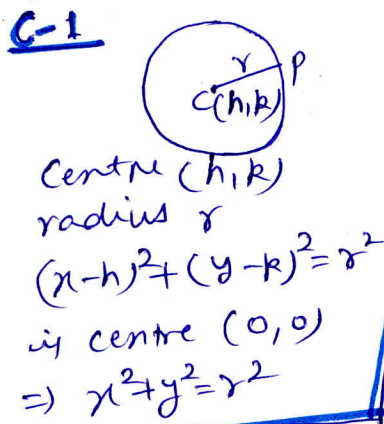 C-1
r P
C(h,k)
Centre (h,k)
radius r
(x-h)²+(y-k)²=r²
if centre (0,0)
⇒ x²+y²=r²